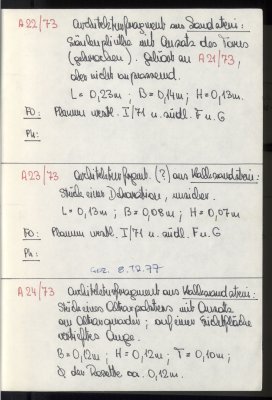 A 22/73 Architekturfragment aus Sandstein:
Säulenplinthe mit Ansatz des Torus
(gebrochen). gehört an A 21/73,
aber nicht anpassend.
L = 0,23m ; B = 0,14m ; H = 0,13m.
FO: Planum westl. I/71 u. südl. F u. G
Ph:
A 23/73 Architekturfragmt. (?) aus Kalksandstein:
Stück einer Dekoration, unsicher.
L = 0,13m ; B = 0,08m ; H = 0,07m
FO: Planum westl. I/71 u. südl. F u. G
Ph:
Gez. 8.12.77
A 24/73 Architekturfragment aus Kalksandstein:
Stück eines Altarpolsters mit Ansatz
am Altarquader; auf einer Sichtfläche
vertieftes Auge.
B = 0,12m ; H = 0,12m ; T = 0,10m ;
der Rosette ca. 0,12m.